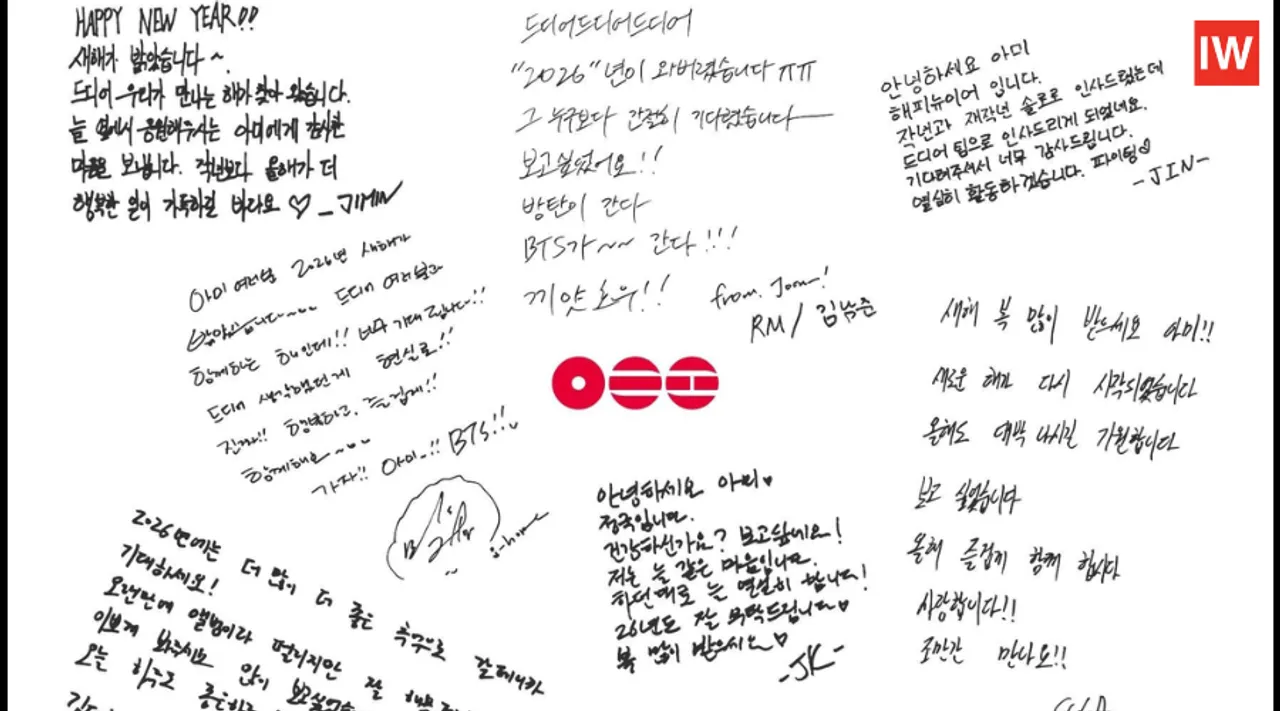 HAPPY NEW YEAR!!
새해가 밝았습니다~.
드디어 우리가 만나는 해가 찾아 왔습니다.
늘 옆에서 응원해주시는 아미에게 감사한
마음을 보냅니다. 작년보다 올해가 더
행복한 일이 가득하길 바라요 ♡ - JIMIN
드디어드디어드디어
"2026"년이 와버렸습니다 ㅠㅠ
그 누구보다 간절히 기다렸습니다
보고싶었어요!!
방탄이 간다
BTS가~~ 간다!!!
끼얏호우!!
from. Joon!
RM / 김남준
IW
안녕하세요 아미
해피뉴이어 입니다.
작년과 재작년 솔로로 인사드렸는데
드디어 팀으로 인사드리게 되었네요.
기다려주셔서 너무 감사드립니다.
열심히 활동하겠습니다. 파이팅♡
-JIN-
아미 여러분 2026년 새해가
밝았습니다~~ 드디어 여러분과
함께하는 해인데!! 너무 기대됩니다!!
드디어 생각했던게 현실로!!
진짜!! 행복하고, 즐겁게!!
함께해요~
가자!! 아미~!! BTS!!
j-hope
새해 복 많이 받으세요 아미!!
새로운 해가 다시 시작되었습니다
올해도 대박 나시길 기원합니다
보고 싶었습니다
올해 즐겁게 함께 합시다
사랑합니다!!
조만간 만나요!!
안녕하세요 아미♥
정국입니다.
건강하신가요? 보고싶네요!
저는 늘 같은 마음입니다.
하던대로 늘 열심히 합니다!
26년도 잘 부탁드립니다♥
복 많이 받으시오♥
-JK-
2026년에는 더 많이 더 좋은 추억으로
기대하세요!
오랜만에 앨범이라 떨리지만 잘
이쁘게 봐주시고 많이
오늘 하루도